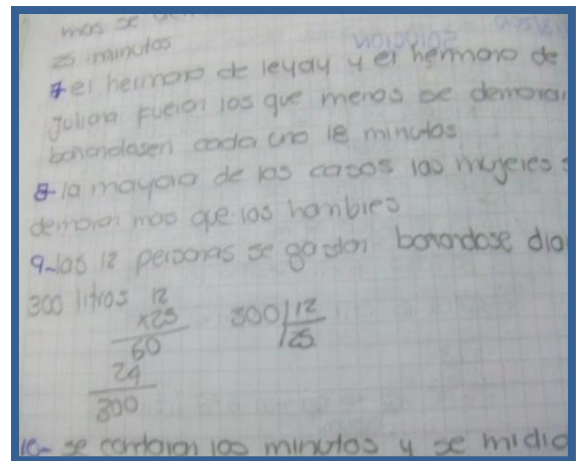 mas se
25 minutos
7 el hermano de leydy y el hermano de
juliana fueron los que menos se demoran
bañandosen cada uno 18 minutos
8- la mayoria de los casos las mujeres s
demoran mas que los hombres
9-las 12 personas se gastan bañandose dia
300 litros 12
x25 300 12
60 25
24
300
10- se contaron los minutos y se midio